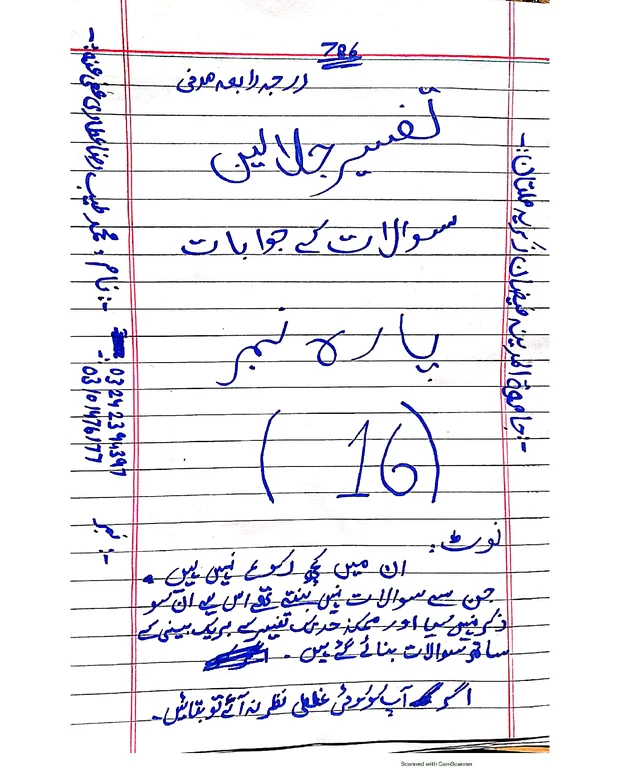 786
درجہ رابعہ مدنی
تفسیر جلالین
سوالات کے جوابات
پارہ نمبر
(16)
نوٹ:
ان میں کچھ رکوع نہیں ہیں۔
جن سے سوالات نہیں بنتے تھے اس لیے ان کو
ذکر نہیں کیا اور ممکنہ حد تک تفسیر کے باریک بینی کے
ساتھ سوالات بنائے گئے ہیں۔
اگر آپ کو کوئی غلطی نظر آئے تو بتائیں۔
جامعۃ المدینہ فیضان زکریہ ملتان:-
نام: محمد طیب رضا عطاری عفی عنہ:-
نمبر:-
03242394397
03101476177
Scanned with CamScanner